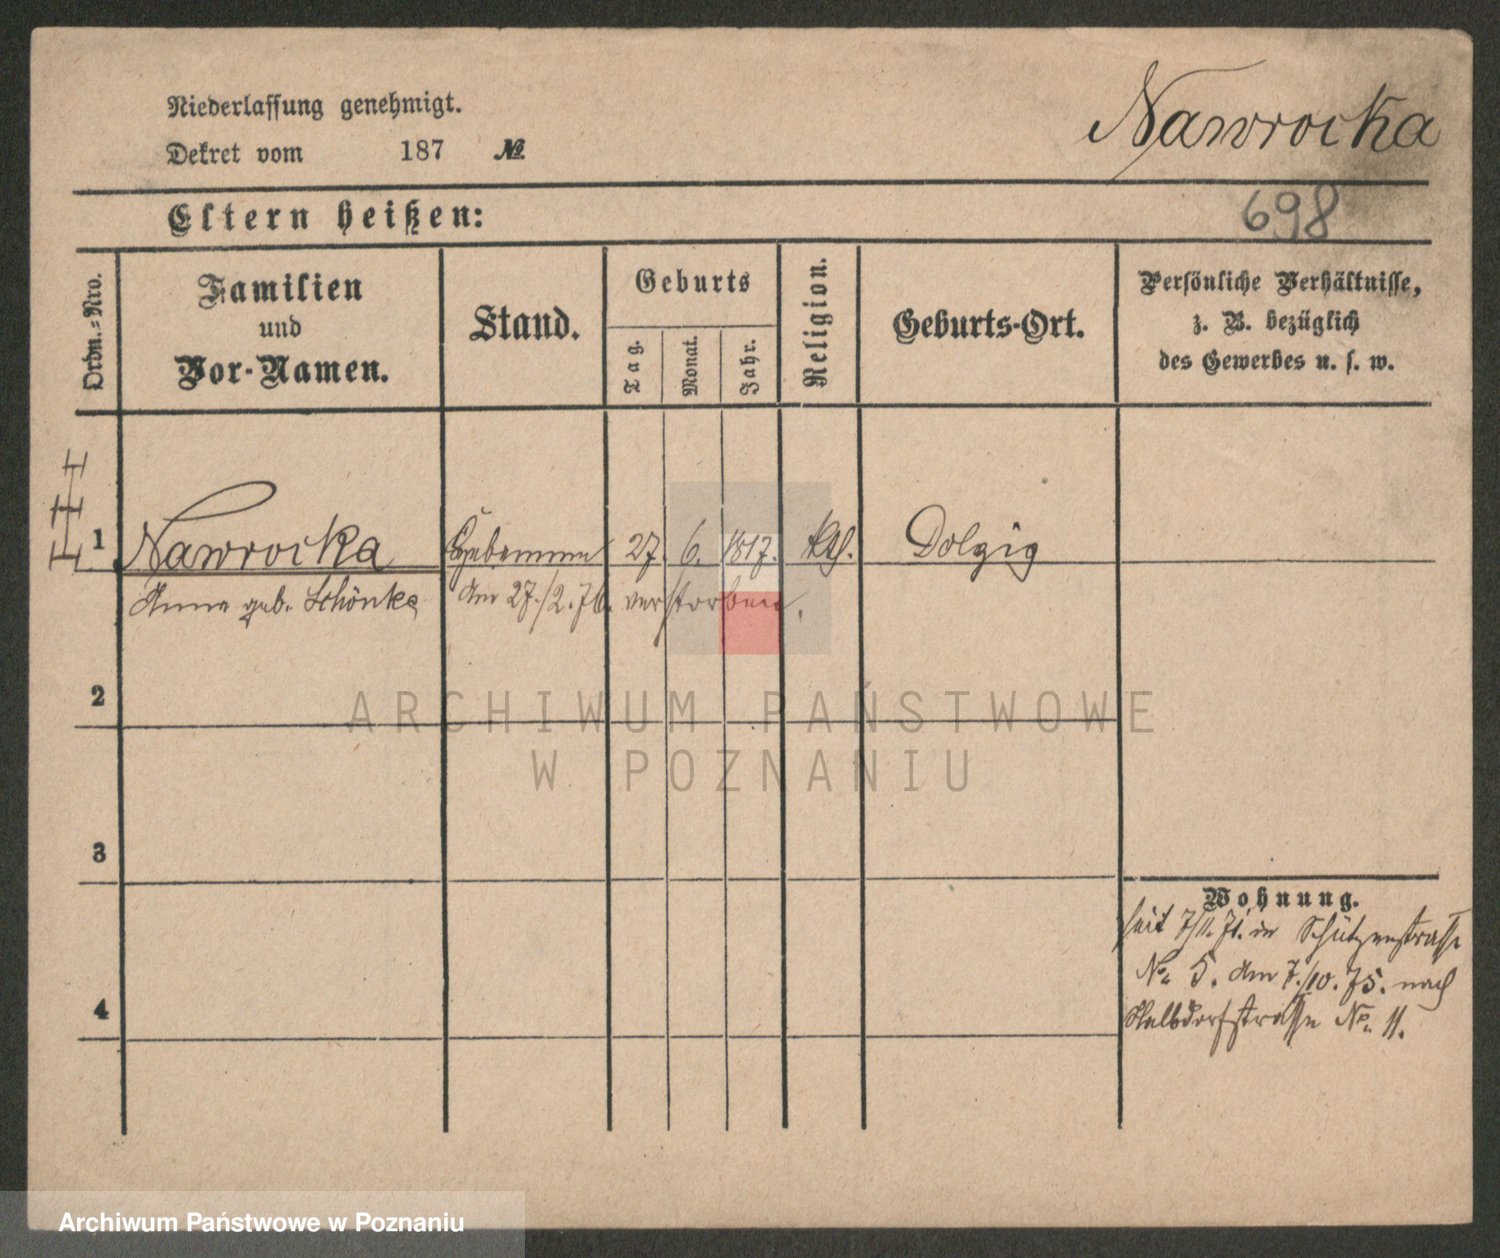 Niederlassung genehmigt.
Dekret vom 187 №
Nawrocka
698
Eltern heißen:
Ordn.-Nro.
Familien
und
Vor-Namen.
Stand.
Geburts
Tag.
Monat.
Jahr.
Religion.
Geburts-Ort.
Persönliche Verhältnisse,
z. B. bezüglich
des Gewerbes u. s. w.
1 Nawrocka Hebamme 27. 6. 1817. kth. Dolzig
Anna geb. Schönke am 27./2.76. verstorben.
2
ARCHIWUM PAŃSTWOWE
W POZNANIU
3
Wohnung.
seit 7/11.71. in Schützenstrasse
No. 5. Am 7./10.75. nach
Halbdorfstrasse No. 11.
4
Archiwum Państwowe w Poznaniu